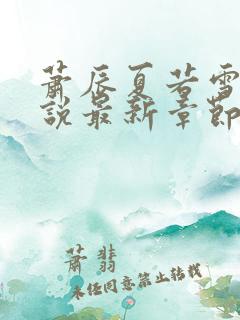 萧辰夏若雪
说最新章节
萧翡
未经同意禁止转载